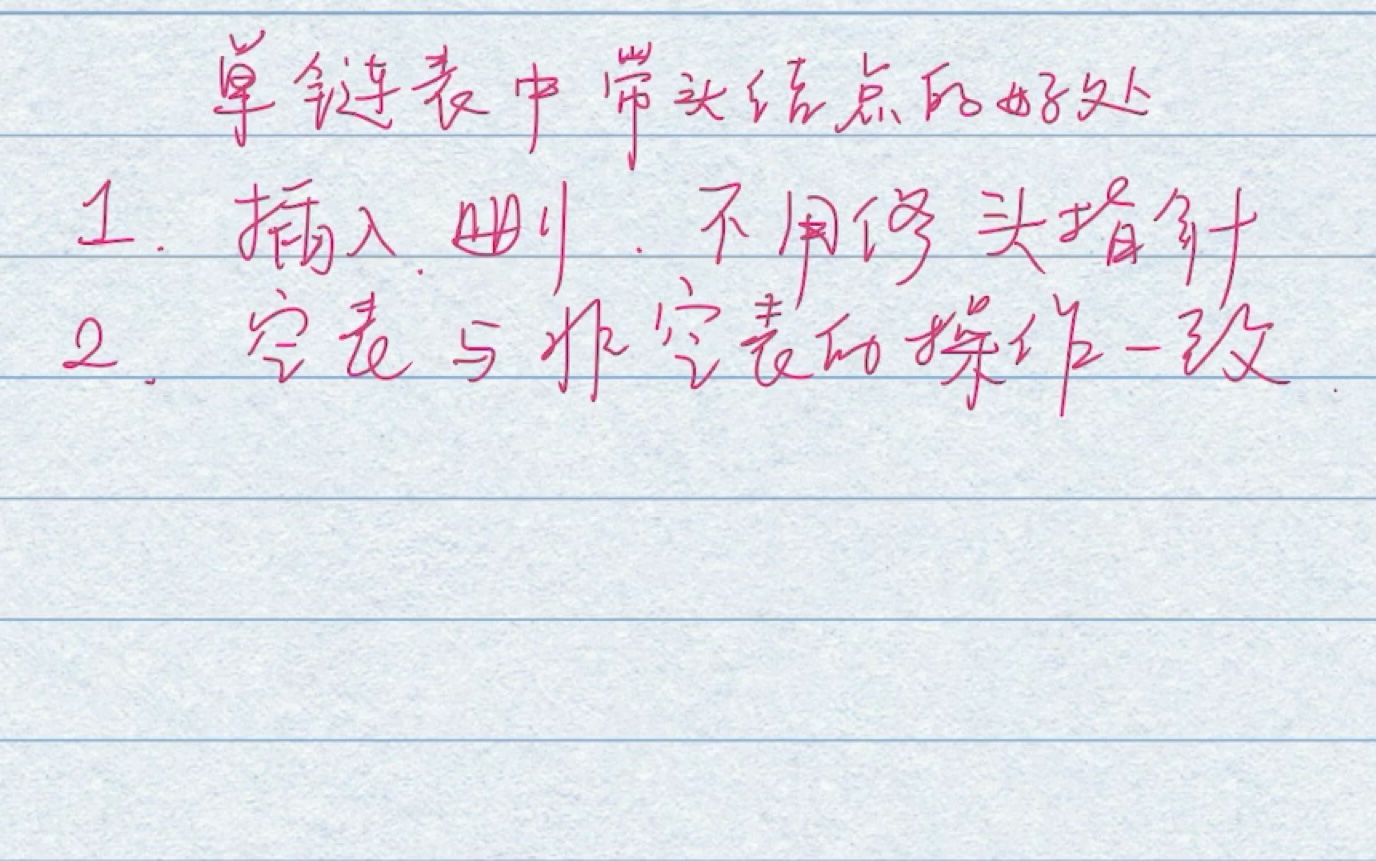 单链表中带头结点的好处
1. 插入.删.不用修头指针
2. 空表与非空表的操作一致.